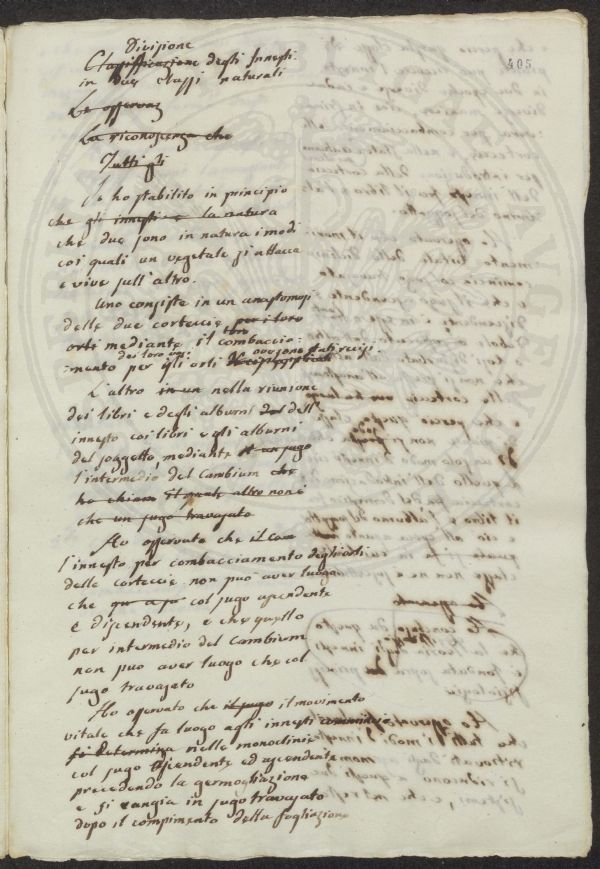 405
Divisione
Classificazione degli Innesti
in due classi naturali
Le osservaz
La riconoscenza che
Tutti gli
Io ho stabilito in principio
che gli innesti e la natura
che due sono in natura i modi
coi quali un vegetale si attacca
e vive sull'altro.
Uno consiste in un anastomosi
delle due corteccie per i loro
orli mediante il loro combaccio=
=mento per gli orli ove sono stati recisi.
L'altro in un nella riunione
dei libri e degli alburni del dell'
innesto coi libri e gli alburni
del soggetto mediante il un sugo
l'intermedio del Cambium che
ho chiam il quale altro non è
che un sugo travasato
Ho osservato che il com
l'innesto per combacciamento degli orli
delle corteccie non può aver luogo
che col sugo ascendente
e discendente, e che quello
per intermedio del Cambium
non può aver luogo che col
sugo travasato
Ho osservato che il sugo il movimento
vitale che fa luogo agli innesti comincia
si determina nelle monoclinie
col sugo discendente ed ascendente
precedendo la germogliazione
e si cangia in sugo travasato
dopo il compimento della fogliazione